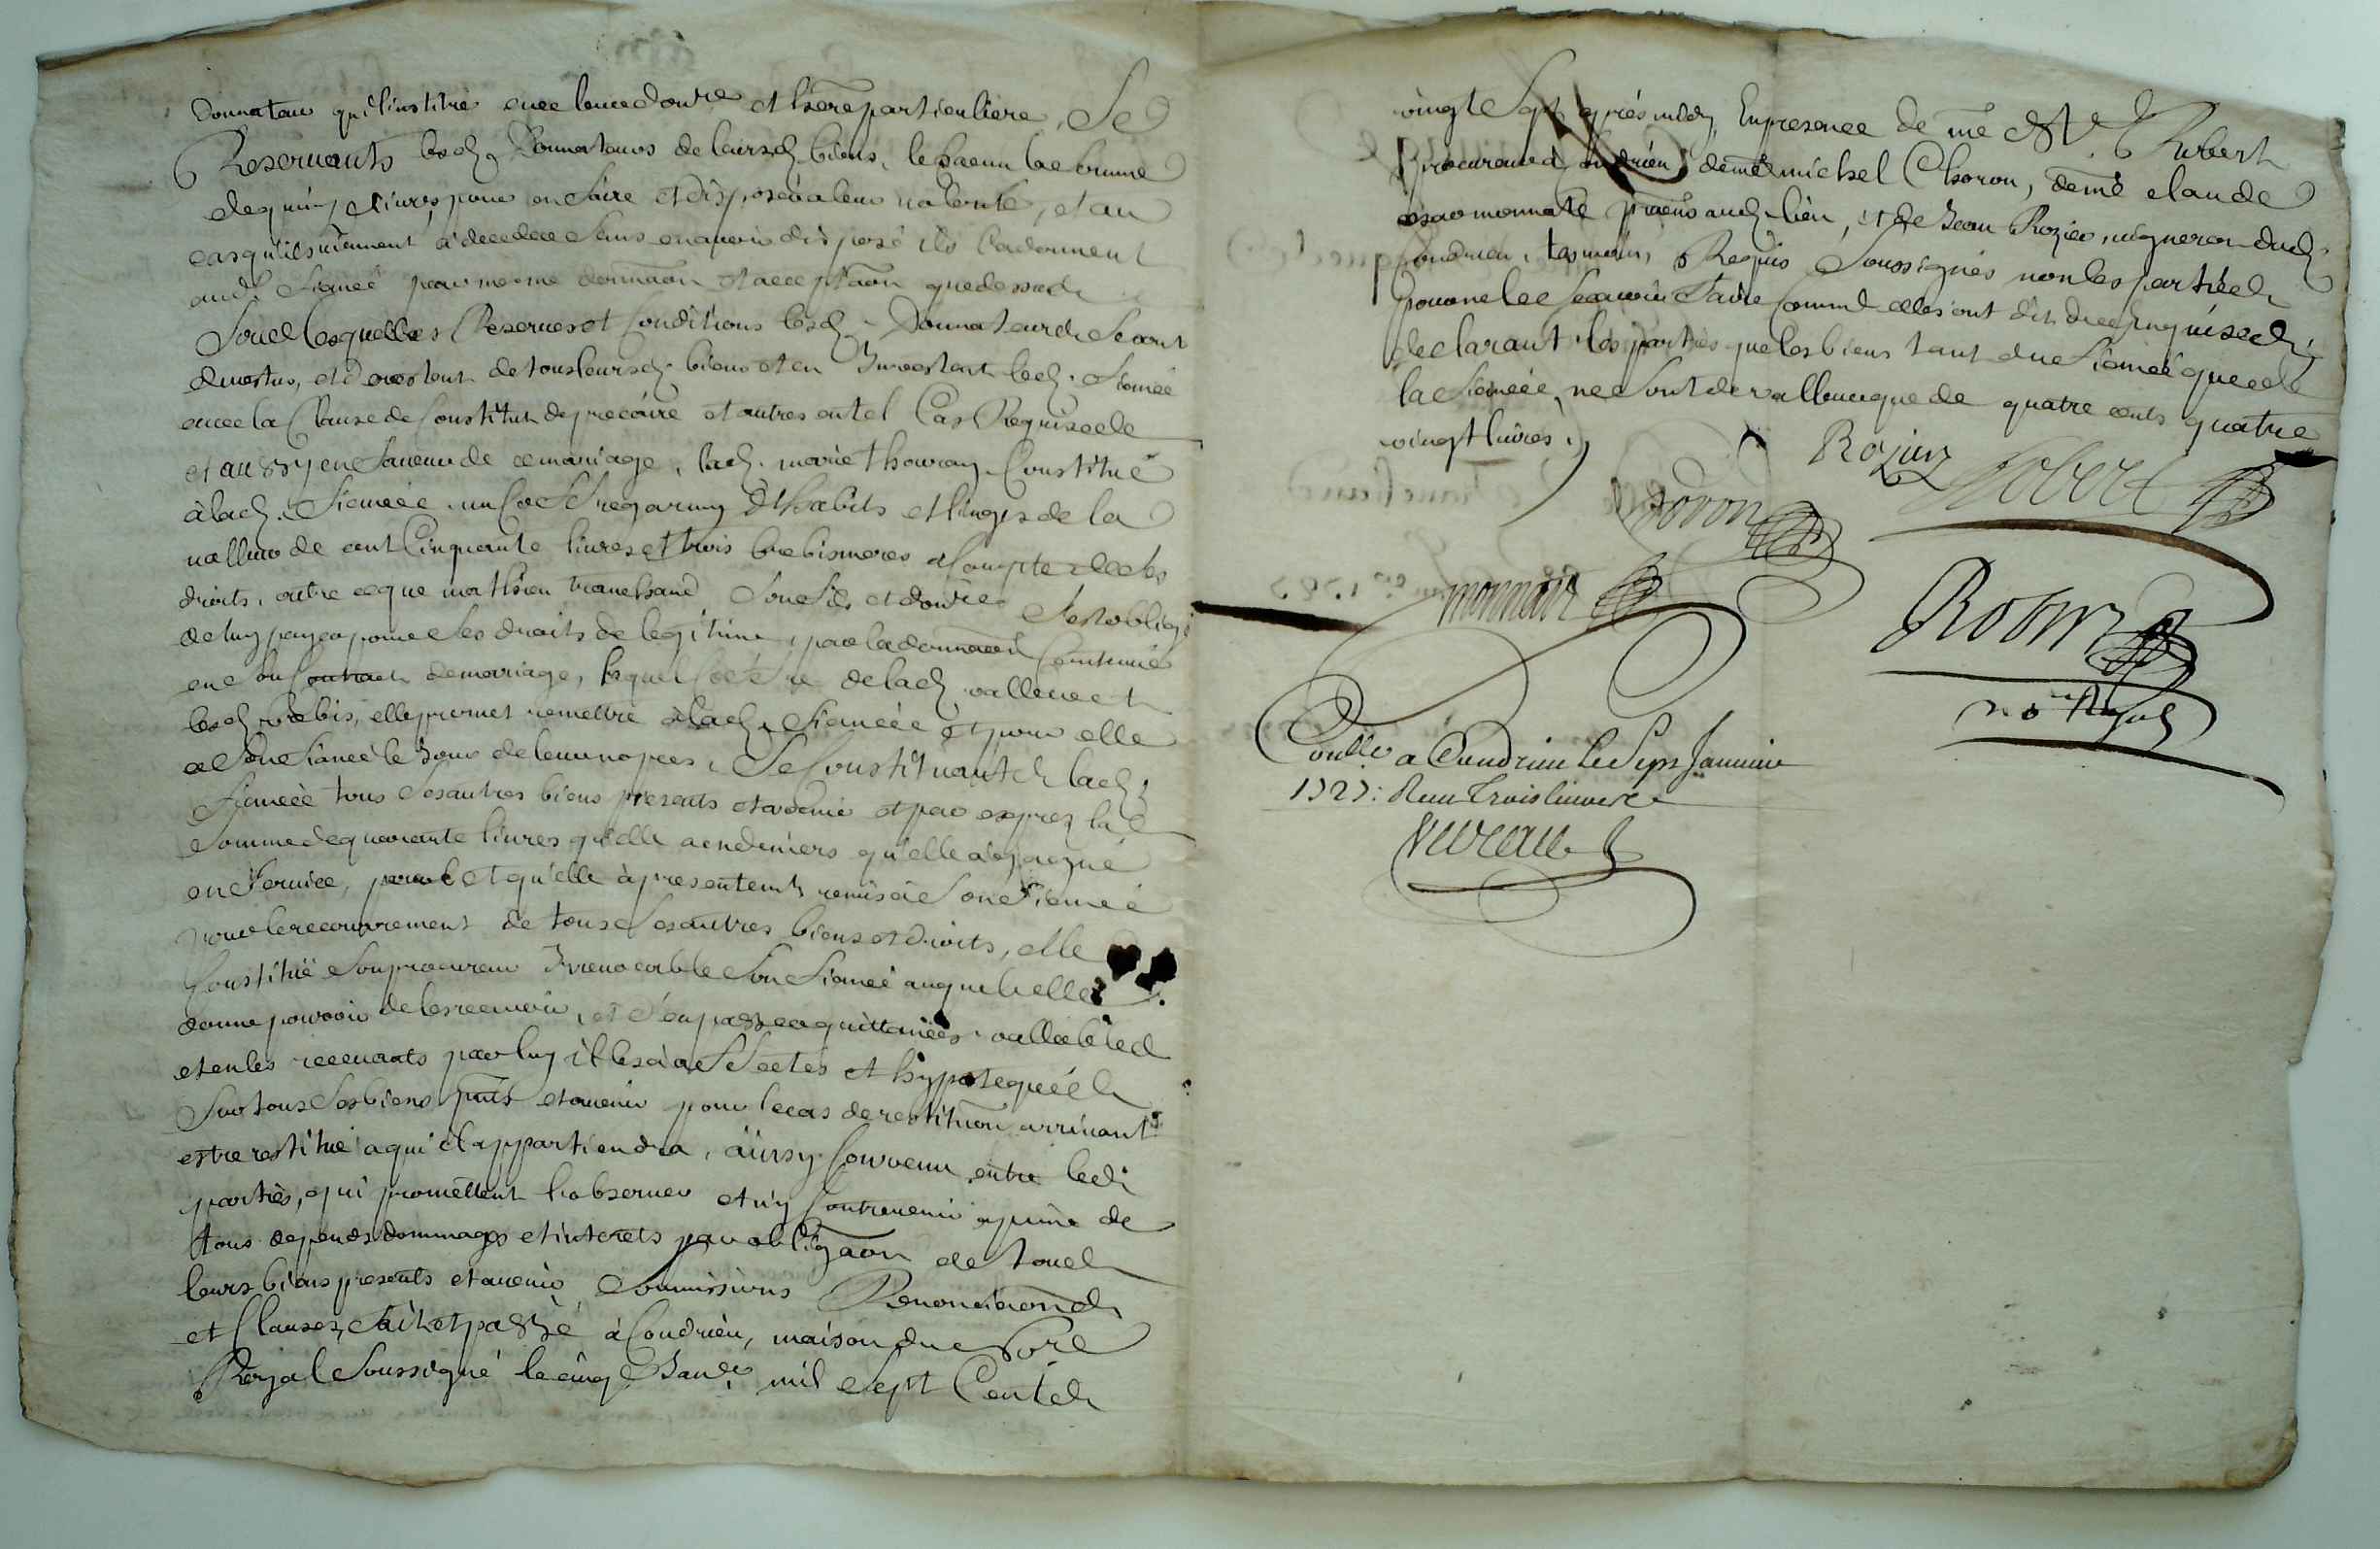 donnateur qu'il institue en ce leur donre et herre particuliere, Se
Reservants lesd. Donnateurs de leursd. biens, le chacun la somme
de quinz livres pour en faire et disposer a leur volonté, et au
cas qu'ils viennent à deceder sans en avoir disposé ils la donnent
aud. fiancé par mesme donnaon et acceptaon que dessus
Soubs lesquelles Reserves et Conditions lesd. Donnateurs se sont
devestus, et devestent de tous leursd. biens et en Investent led. fiancé
avec la Clause de Constitut de precaire et autres en tel Cas Requises
et aussy en faveur de ce mariage, lad. marie thouray Constitué
à lad. fiancée un Coffre garny d'habits et linges de la
valleur de cent Cinquante livres et trois brebis meres a Compte de ses
droits, outre ce que mathieu tranchand Son fils et donre s'est obligé
de luy payer pour ses droits de legitime, par la donnaon Contenüe
en son Contract de mariage, lequel Coffre de lad. valleur et
lesd. brebis, elle promet remettre à lad. fiancée et pour elle
a son fiancé le Jour de leur nopces, Se Constituant lad.
fiancée tous ses autres biens presents et avenir et par exprez la
Somme de quarante livres qu'elle a en deniers qu'elle a gagné
en service, et qu'elle à presentement remis à son fiancé
pour le recouvrement de tous ses autres biens et droits, elle
Constitüe Son procureur Irrevocable Son fiancé auquel elle
donne pouvoir de les recevoir, et d'en passer quittances vallables
et en les recevants par luy il les a affectés et hypotequées
Sur tous Ses biens pnts et avenir pour le cas de restituon arrivant
estre restitué a qui il appartiendra, ainsy Convenu entre les
parties, qui promettent l'observer et n'y Contrevenir a peine de
tous depends dommages et interets par obligaon de tous
leurs biens presents et avenir Soumissions Renonciaons
et Clauses, fait et passé à Condrieu, maison du nore
Royal Soussigné le cinq Janvr mil Sept Cents
vingt Sept après midy, En presence de me Robert
procureur a Condrieu de me michel Choron, de me claude
monnate praens aud. lieu, et de Jean Rozier, vigneron dud.
Condrieu, tesmoins Requis Soussignés non les parties
pour ne le Scavoir faire Comme elles ont dit de ce Enquises
declarant les parties que les biens tant du fiancé que de
la fiancée, ne Sont de valleur que de quatre cents quatre
vingt livres.
Rozier
Robert
Choron
monnate
nore Royal
Conllé a Condrieu le Sept Janvier
1727: Reçu Trois livres